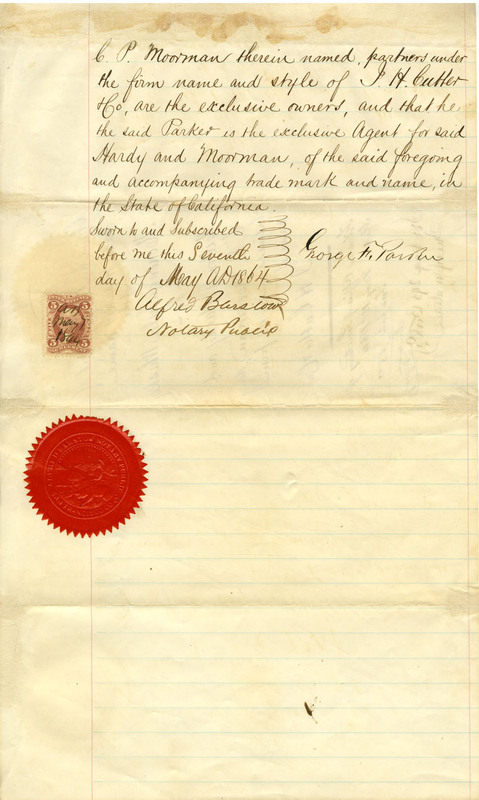 C. P. Moorman therein named, partners under
the firm name and style of J. H. Cutter
& Co, are the exclusive owners, and that he
the said Parker is the exclusive Agent for said
Hardy and Moorman, of the said foregoing
and accompanying trade mark and name, in
the State of California.
Sworn to and Subscribed
before me this Seventh
day of May AD 1864
George F. Parker
Alfred Barstow
Notary Public
5 5
May
5 5